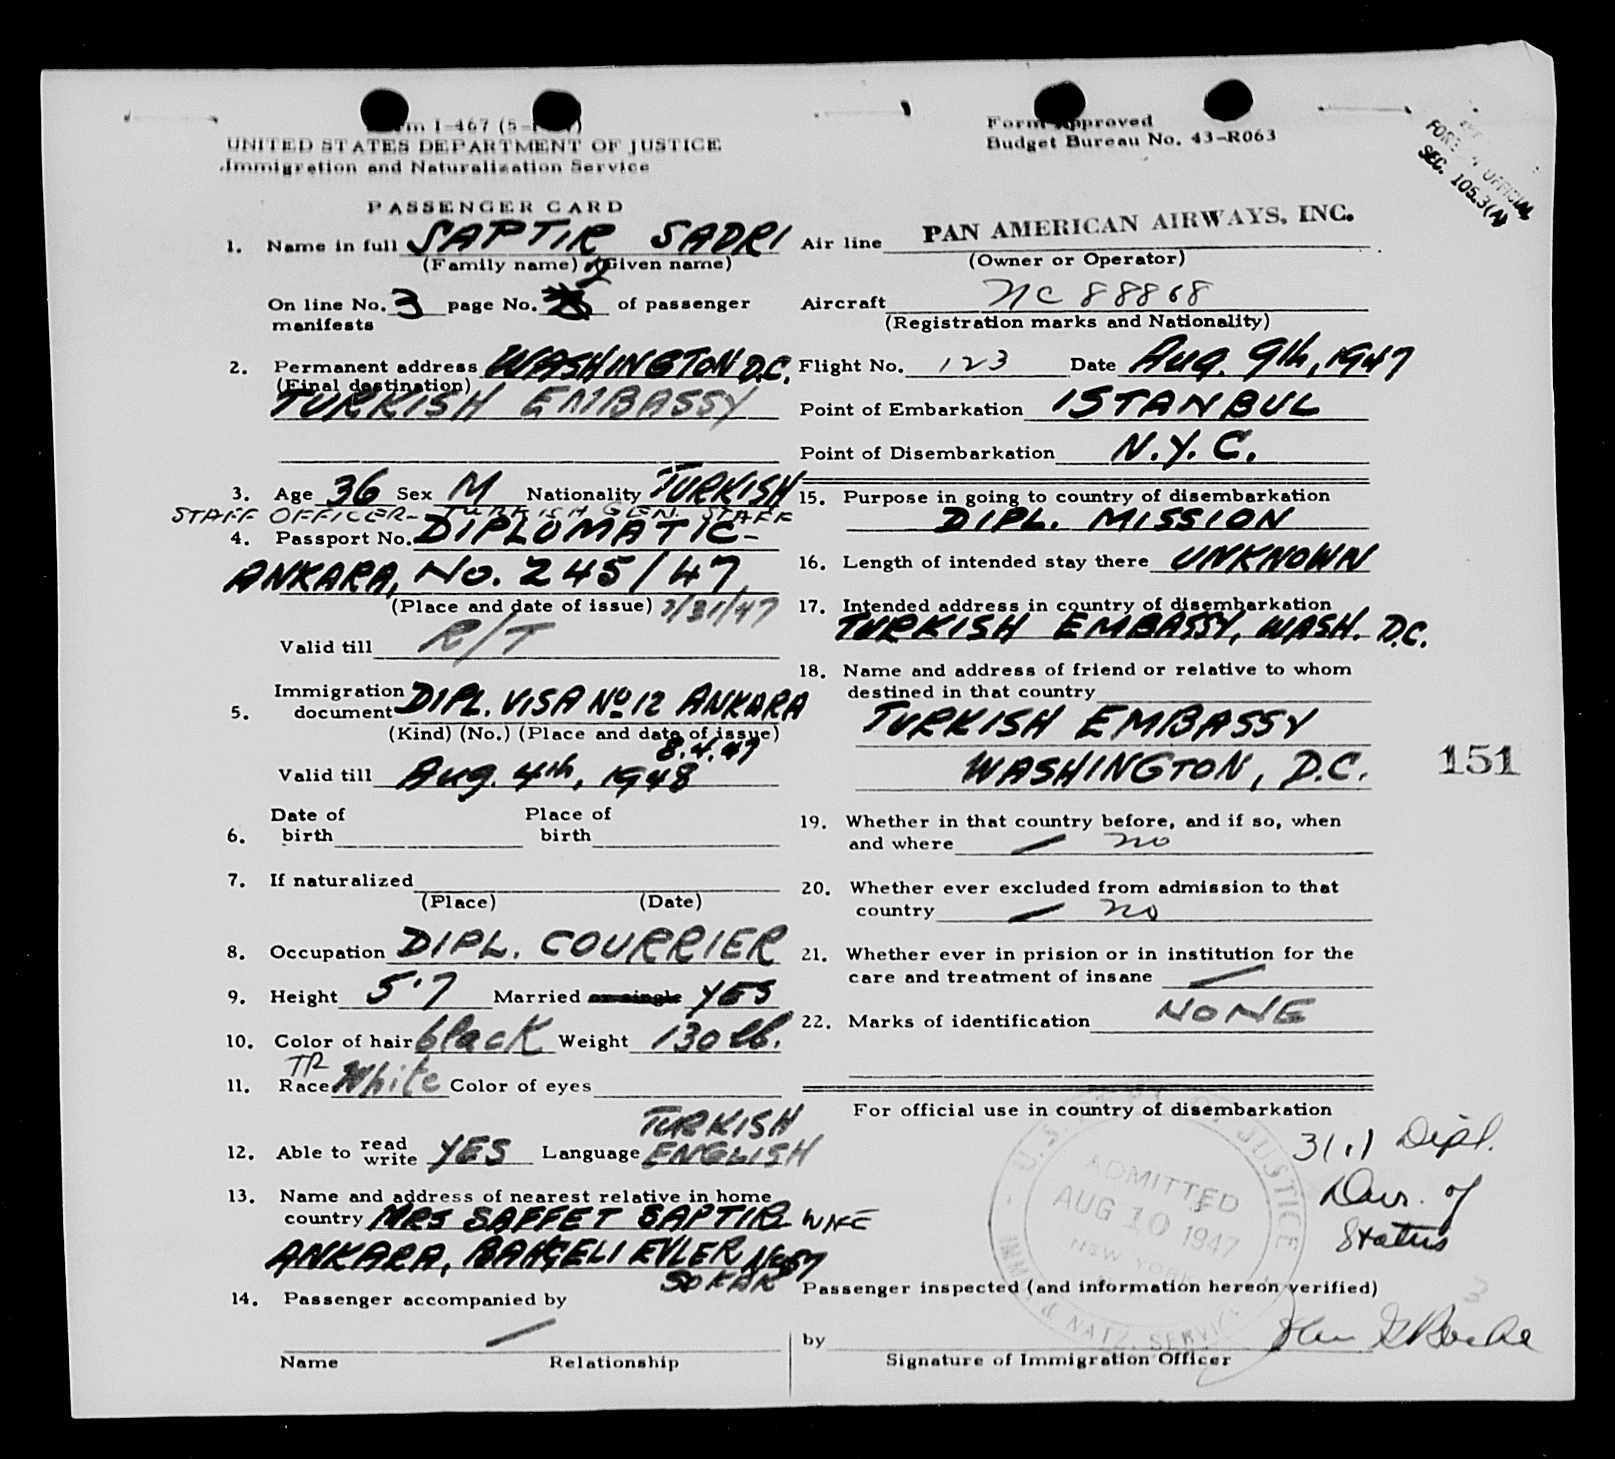 Form I-467
UNITED STATES DEPARTMENT OF JUSTICE
Immigration and Naturalization Service
Form Approved
Budget Bureau No. 43-R063
SEC. 105.3(A)
PASSENGER CARD
1. Name in full SAPTIR SADRI
(Family name) (Given name)
On line No. 3 page No. 2 of passenger
manifests
2. Permanent address WASHINGTON D.C.
(Final destination)
TURKISH EMBASSY
3. Age 36 Sex M Nationality TURKISH
STAFF OFFICER- TURKISH GEN. STAFF
4. Passport No. DIPLOMATIC-
ANKARA, No. 245/47
(Place and date of issue) 7/31/47
Valid till R/T
5. Immigration document DIPL. VISA No 12 ANKARA
(Kind) (No.) (Place and date of issue)
8.4.47
Valid till Aug. 4th, 1948
6. Date of birth Place of birth
7. If naturalized
(Place) (Date)
8. Occupation DIPL. COURRIER
9. Height 5'7 Married or single YES
10. Color of hair black Weight 130 lb.
TR
11. Race White Color of eyes
TURKISH
12. Able to read write YES Language ENGLISH
13. Name and address of nearest relative in home
country MRS SAFFET SAPTIR WIFE
ANKARA, BAHÇELI EVLER No 57
SOKAK
14. Passenger accompanied by
Name Relationship
Air line PAN AMERICAN AIRWAYS, INC.
(Owner or Operator)
Aircraft NC 88868
(Registration marks and Nationality)
Flight No. 123 Date Aug. 9th, 1947
Point of Embarkation ISTANBUL
Point of Disembarkation N.Y.C.
15. Purpose in going to country of disembarkation
DIPL. MISSION
16. Length of intended stay there UNKNOWN
17. Intended address in country of disembarkation
TURKISH EMBASSY, WASH. D.C.
18. Name and address of friend or relative to whom
destined in that country
TURKISH EMBASSY
WASHINGTON, D.C.
151
19. Whether in that country before, and if so, when
and where no
20. Whether ever excluded from admission to that
country no
21. Whether ever in prision or in institution for the
care and treatment of insane
22. Marks of identification NONE
For official use in country of disembarkation
U.S. DEPT. OF JUSTICE
ADMITTED
AUG 10 1947
NEW YORK
IMM. & NATZ. SERVICE
3(1) Dipl.
Status
Passenger inspected (and information hereon verified)
3
by
Signature of Immigration Officer